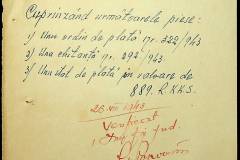 Cuprinzând următoarele piese:
1) Un ordin de plată nr. 322/943
2) Una chitanță nr. 292/943.
3) Un titlu de plată în valoare de
889. R.K.K.S.
28 VII 1943
Verificat